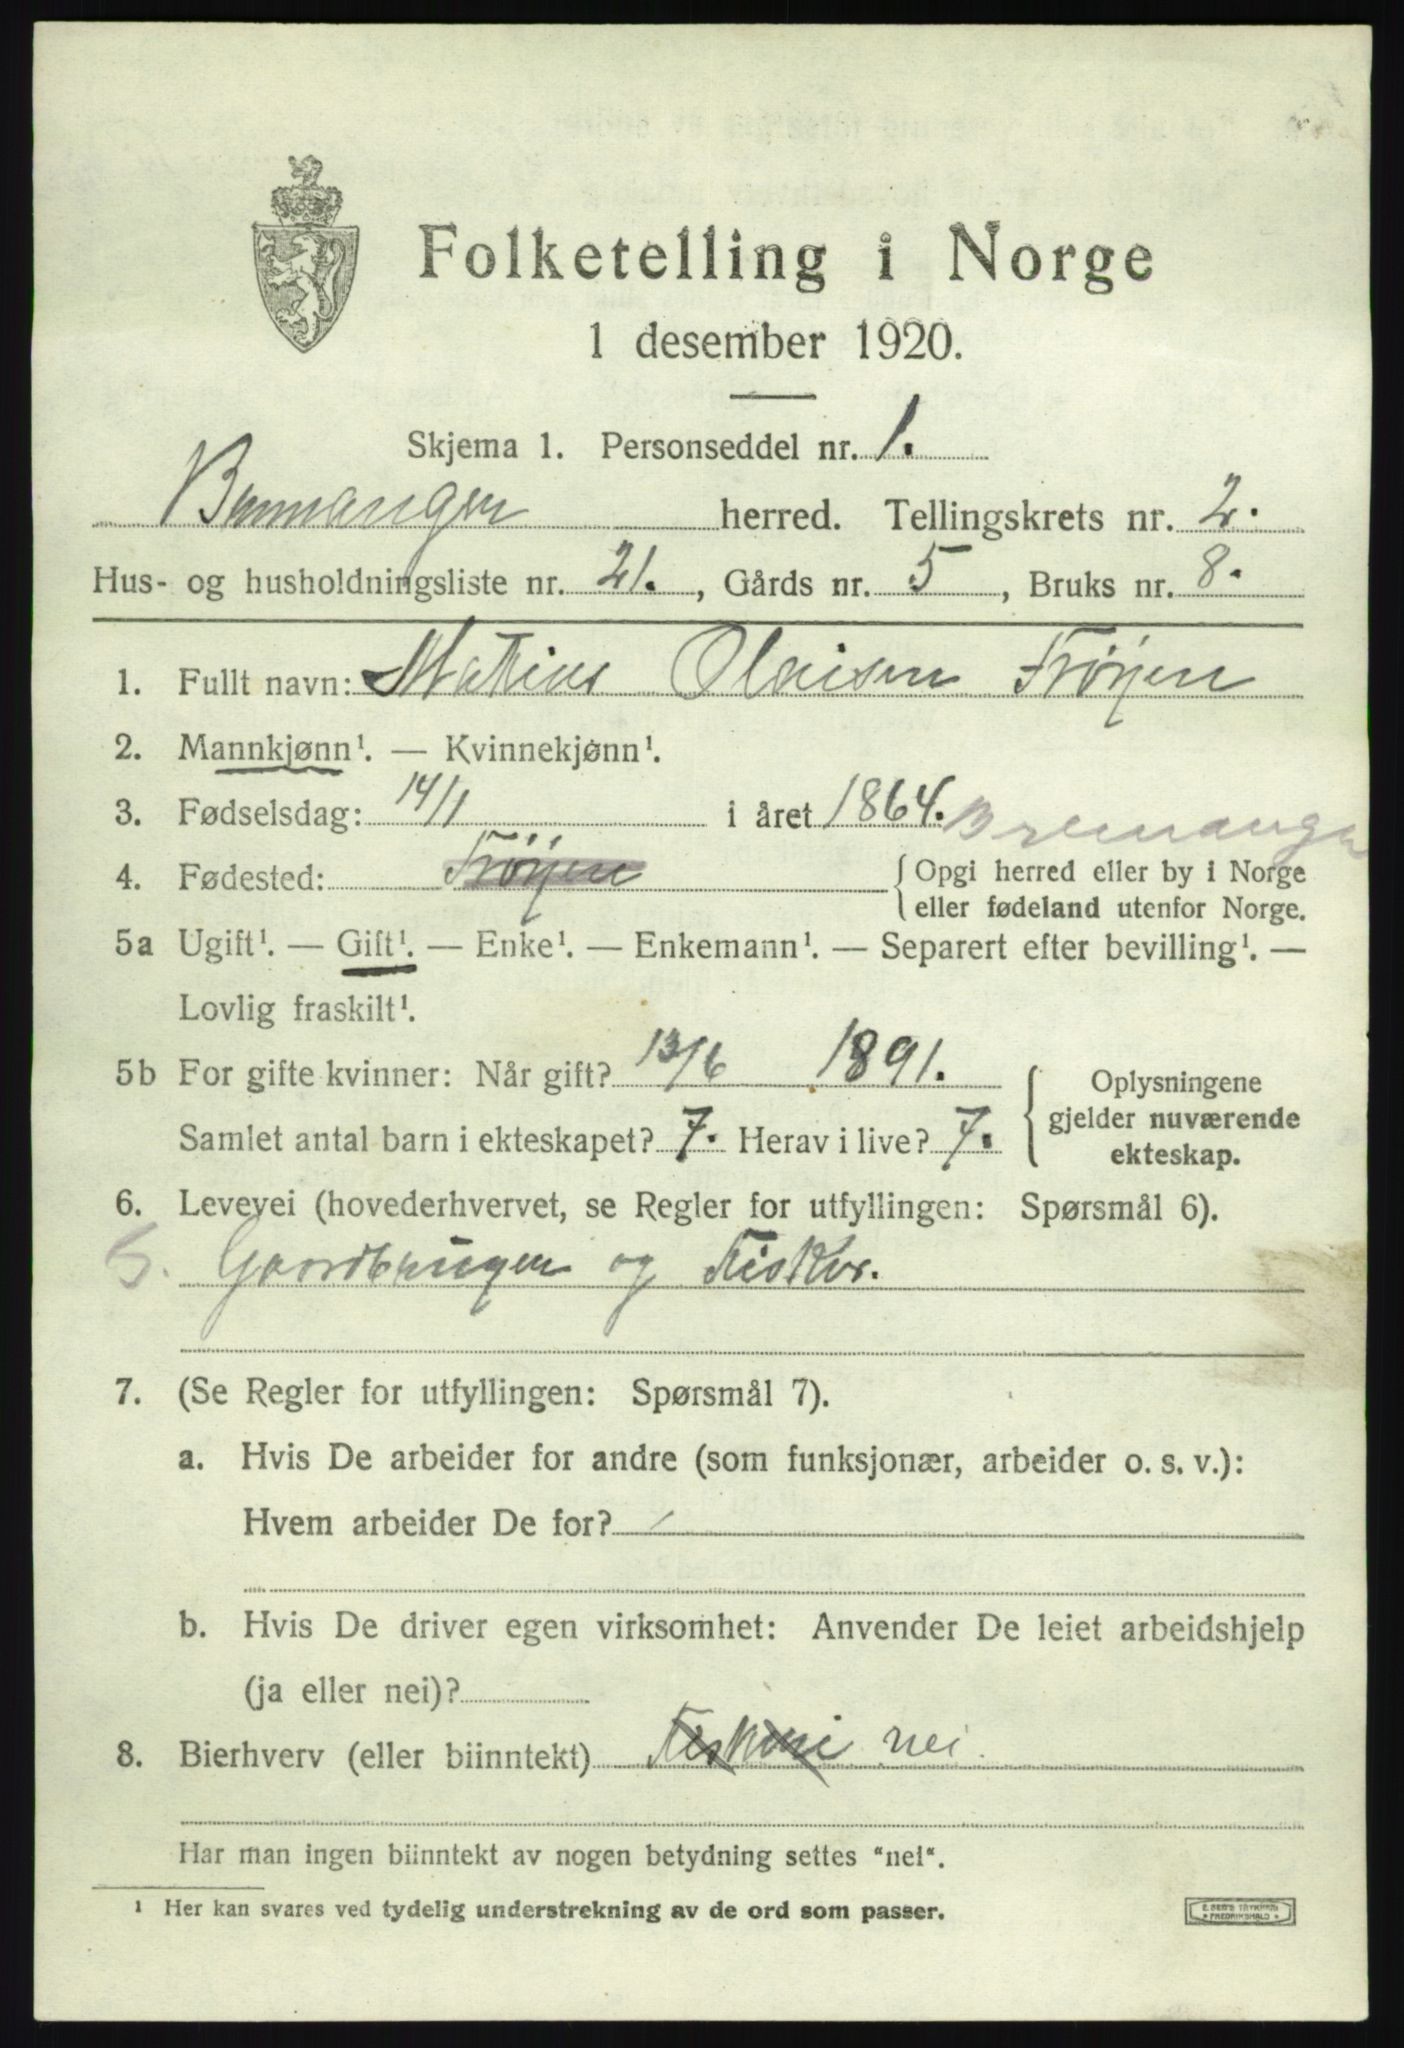 Folketelling i Norge
1 desember 1920.
Skjema 1. Personseddel nr. 1.
Bremanger herred. Tellingskrets nr. 2.
Hus- og husholdningsliste nr. 21. , Gårds nr. 5 , Bruks nr. 8.
1. Fullt navn: Matias Olaisen Frøyen
2. Mannkjønn¹. — Kvinnekjønn¹.
3. Fødselsdag: 14/1 i året 1864. Bremanger
4. Fødested: Frøyen { Opgi herred eller by i Norge
eller fødeland utenfor Norge.
5a Ugift¹. — Gift¹. — Enke¹. — Enkemann¹. — Separert efter bevilling¹. —
Lovlig fraskilt¹.
5b For gifte kvinner: Når gift? 13/6 1891. { Oplysningene
Samlet antal barn i ekteskapet? 7. Herav i live? 7. gjelder nuværende
ekteskap.
6. Levevei (hovederhvervet, se Regler for utfyllingen: Spørsmål 6).
Gaardbruger og Fisker.
7. (Se Regler for utfyllingen: Spørsmål 7).
a. Hvis De arbeider for andre (som funksjonær, arbeider o. s. v.):
Hvem arbeider De for?
b. Hvis De driver egen virksomhet: Anvender De leiet arbeidshjelp
(ja eller nei)?
8. Bierhverv (eller biinntekt) Fiskeri nei.
Har man ingen biinntekt av nogen betydning settes "nei".
¹ Her kan svares ved tydelig understrekning av de ord som passer.